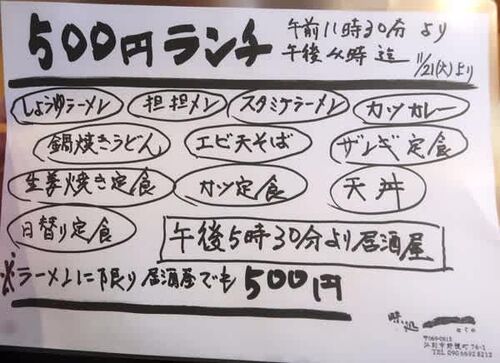 500円ランチ 午前11時30分より
午後4時迄 11/21(火)より
しょうゆラーメン 担担メン スタミナラーメン カツカレー
鍋焼きうどん エビ天そば ザンギ定食
生姜焼き定食 カツ定食 天丼
日替り定食 午後5時30分より居酒屋
※ラーメンに限り居酒屋でも500円
味処
江別市野幌町
TEL 090